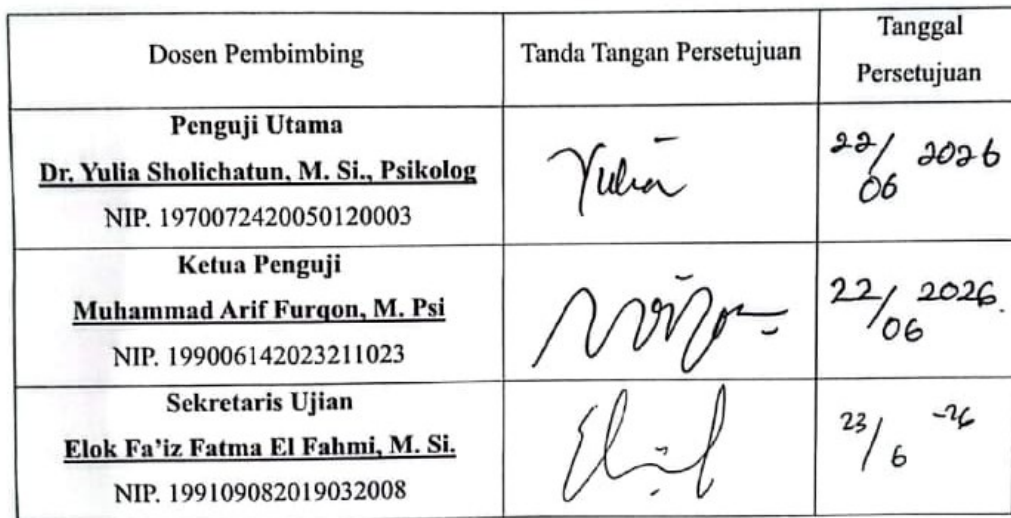 Dosen Pembimbing
Tanda Tangan Persetujuan
Tanggal
Persetujuan
Penguji Utama
Dr. Yulia Sholichatun, M. Si., Psikolog
NIP. 1970072420050120003
Yulia
22/06 2026
Ketua Penguji
Muhammad Arif Furqon, M. Psi
NIP. 199006142023211023
22/06 2026.
Sekretaris Ujian
Elok Fa'iz Fatma El Fahmi, M. Si.
NIP. 199109082019032008
23/6 -26